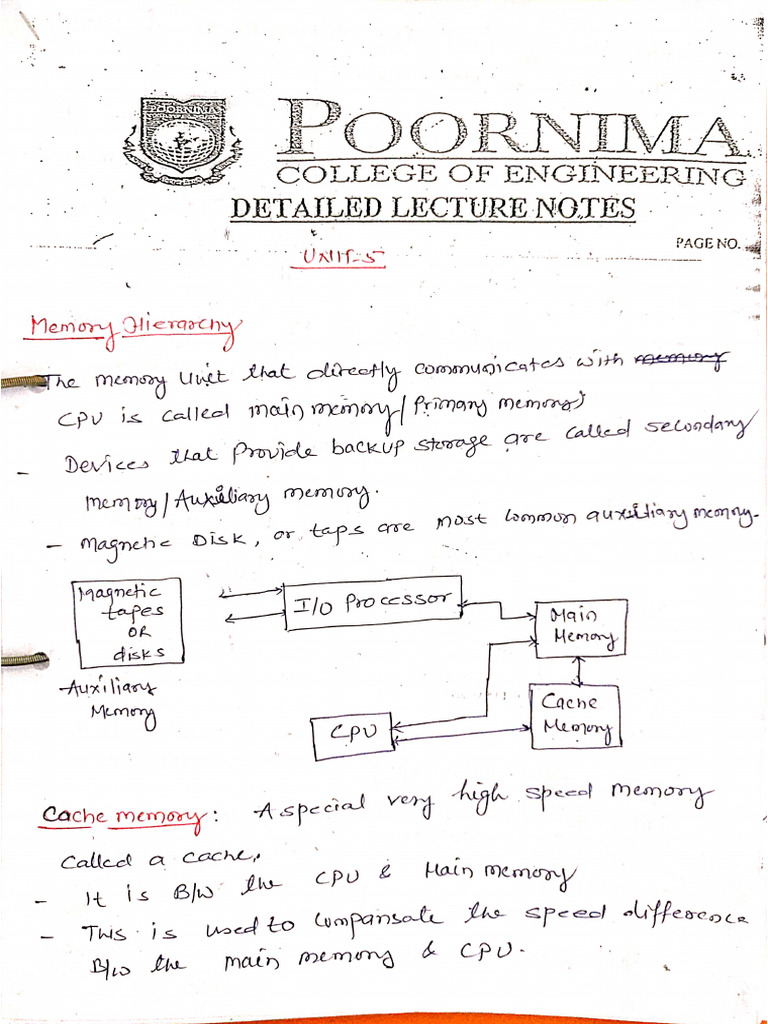 POORNIMA
POORNIMA
COLLEGE OF ENGINEERING
DETAILED LECTURE NOTES
PAGE NO.
UNIT-5
Memory Hierarchy
The memory unit that directly communicates with memory
CPU is called main memory/Primary memory;
- Devices that provide backup storage are called secondary
memory/Auxiliary memory.
- Magnetic Disk, or taps are most common auxiliary memory.
Magnetic
tapes
OR
disks
Auxiliary
Memory
I/O Processor
Main
Memory
Cache
Memory
CPU
Cache memory: A special very high speed memory
called a cache,
- It is B/w the CPU & Main memory
- This is used to compansate the speed difference
B/w the main memory & CPU.